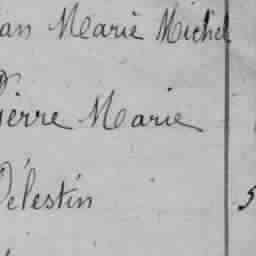 ean Marie Michel
Pierre Marie
Célestin 5